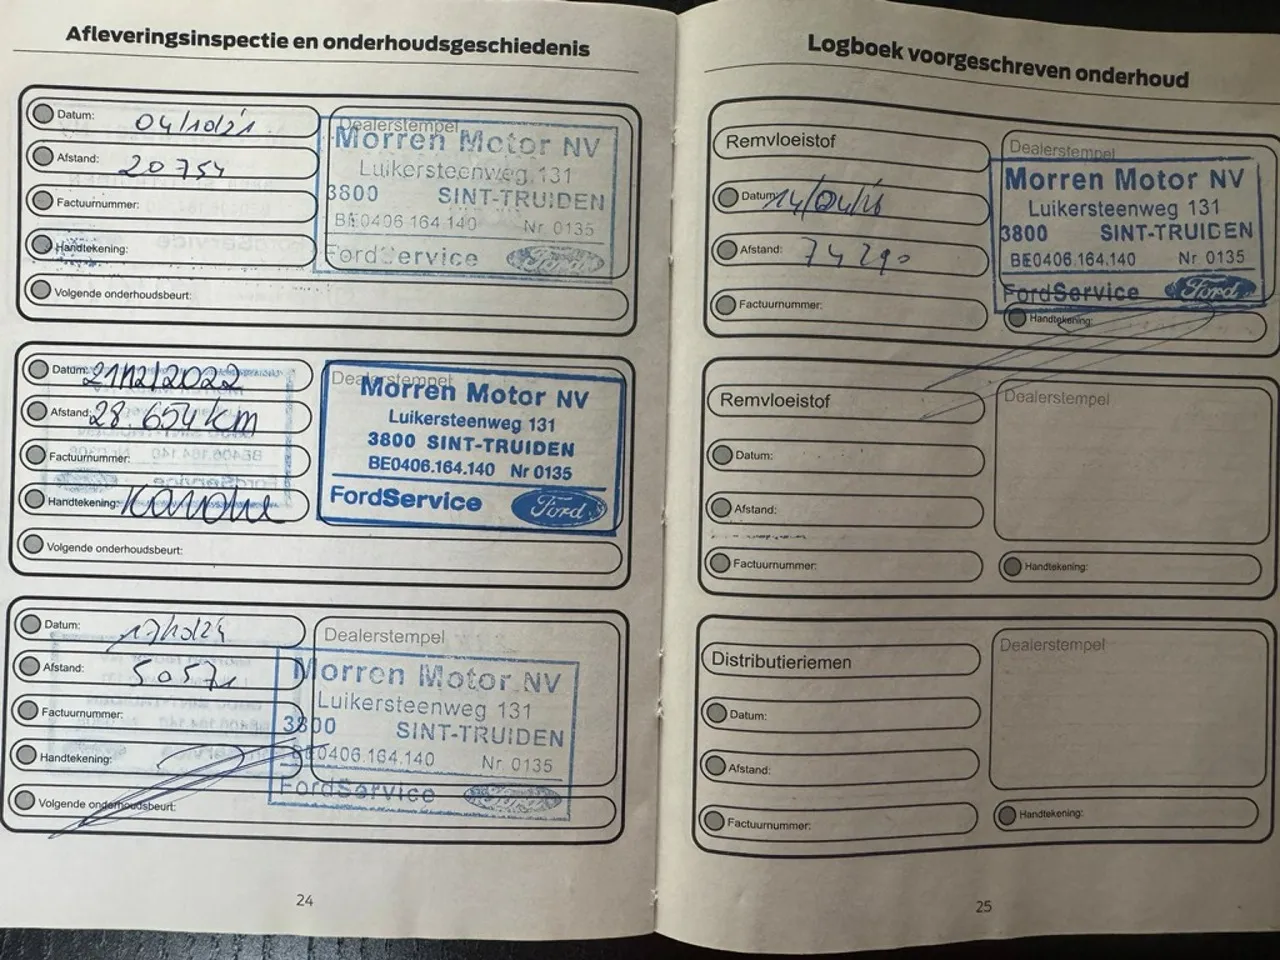 Afleveringsinspectie en onderhoudsgeschiedenis
Datum: 04/10/21
Afstand: 20754
Factuurnummer:
Handtekening:
Volgende onderhoudsbeurt:
Dealerstempel
Morren Motor NV
Luikersteenweg 131
3800 SINT-TRUIDEN
BE0406.164.140 Nr 0135
FordService Ford
Datum: 21/12/2022
Afstand: 28.654 km
Factuurnummer:
Handtekening:
Volgende onderhoudsbeurt:
Dealerstempel
Morren Motor NV
Luikersteenweg 131
3800 SINT-TRUIDEN
BE0406.164.140 Nr 0135
FordService Ford
Datum: 17/10/24
Afstand: 50571
Factuurnummer:
Handtekening:
Volgende onderhoudsbeurt:
Dealerstempel
Morren Motor NV
Luikersteenweg 131
3800 SINT-TRUIDEN
BE0406.164.140 Nr 0135
FordService Ford
24
Logboek voorgeschreven onderhoud
Remvloeistof
Datum: 14/04/26
Afstand: 74290
Factuurnummer:
Dealerstempel
Morren Motor NV
Luikersteenweg 131
3800 SINT-TRUIDEN
BE0406.164.140 Nr 0135
FordService Ford
Handtekening:
Remvloeistof
Datum:
Afstand:
Factuurnummer:
Dealerstempel
Handtekening:
Distributieriemen
Datum:
Afstand:
Factuurnummer:
Dealerstempel
Handtekening:
25